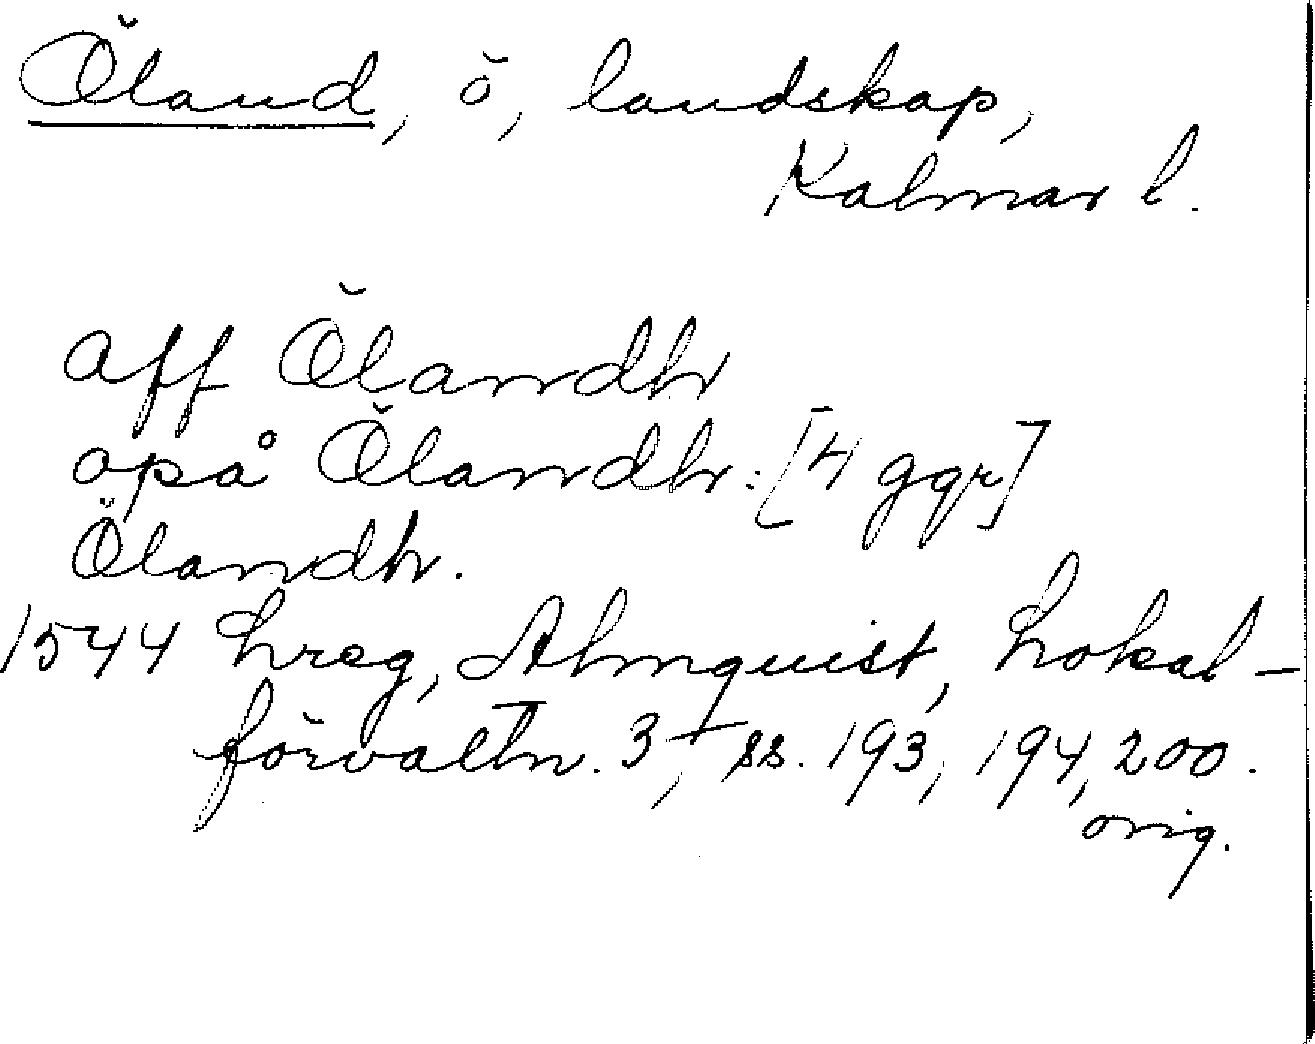 Öland, ö, landskap,
Kalmar l.
aff Ölandh
opå Ölandh: [4 ggr]
Ölandh.
1544 Lreg, Almquist, Lokal-
förvaltn. 3, ss. 193, 194, 200.
orig.